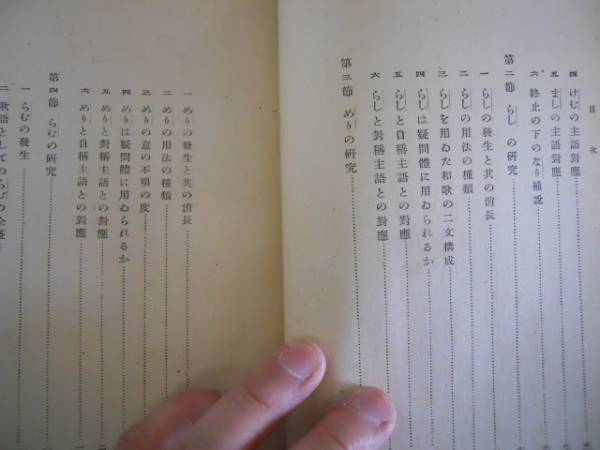 目次
四 けむの主語對應
五 ましの主語對應
六 終止の下のなり補說
第二節 らし の硏究
一 らしの發生と其の消長
二 らしの用法の種類
三 らしを用ゐた和歌の二文構成
四 らしは疑問體に用ゐられるか
五 らしと自稱主語との對應
六 らしと對稱主語との對應
第三節 めりの硏究
一 めりの發生と其の消長
二 めりの用法の種類
三 めりの意の不明の度
四 めりは疑問體に用ゐられるか
五 めりと對稱主語との對應
六 めりと自稱主語との對應
第四節 らむの硏究
一 らむの發生
二 歌語としてのらむの全盛